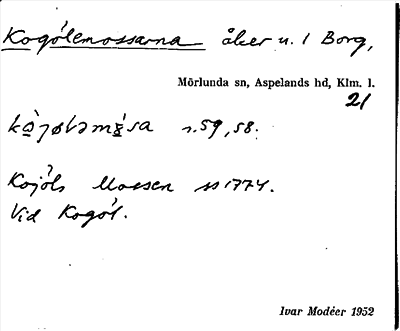 Kogölemossarna åker u. 1 Borg,
Mörlunda sn, Aspelands hd, Klm. l.
21
s. 59, 58.
Kojöls Mossen ss 1774.
Vid Kogöl.
Ivar Modéer 1952